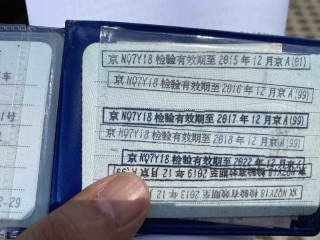 车
号
2-29
京 NQ7Y18 检验有效期至 2015 年 12 月京 A(01)
京 NQ7Y18 检验有效期至 2016 年 12 月京 A(99)
京 NQ7Y18 检验有效期至 2017 年 12 月京 A(99)
京 NQ7Y18 检验有效期至 2018 年 12 月京 A(99)
京 NQ7Y18 检验有效期至 2022 年 12 月京 A
京 NQ7Y18 检验有效期至 2019 年 12 月京 A(99)
京 NQ7Y18 2013 年 12 月